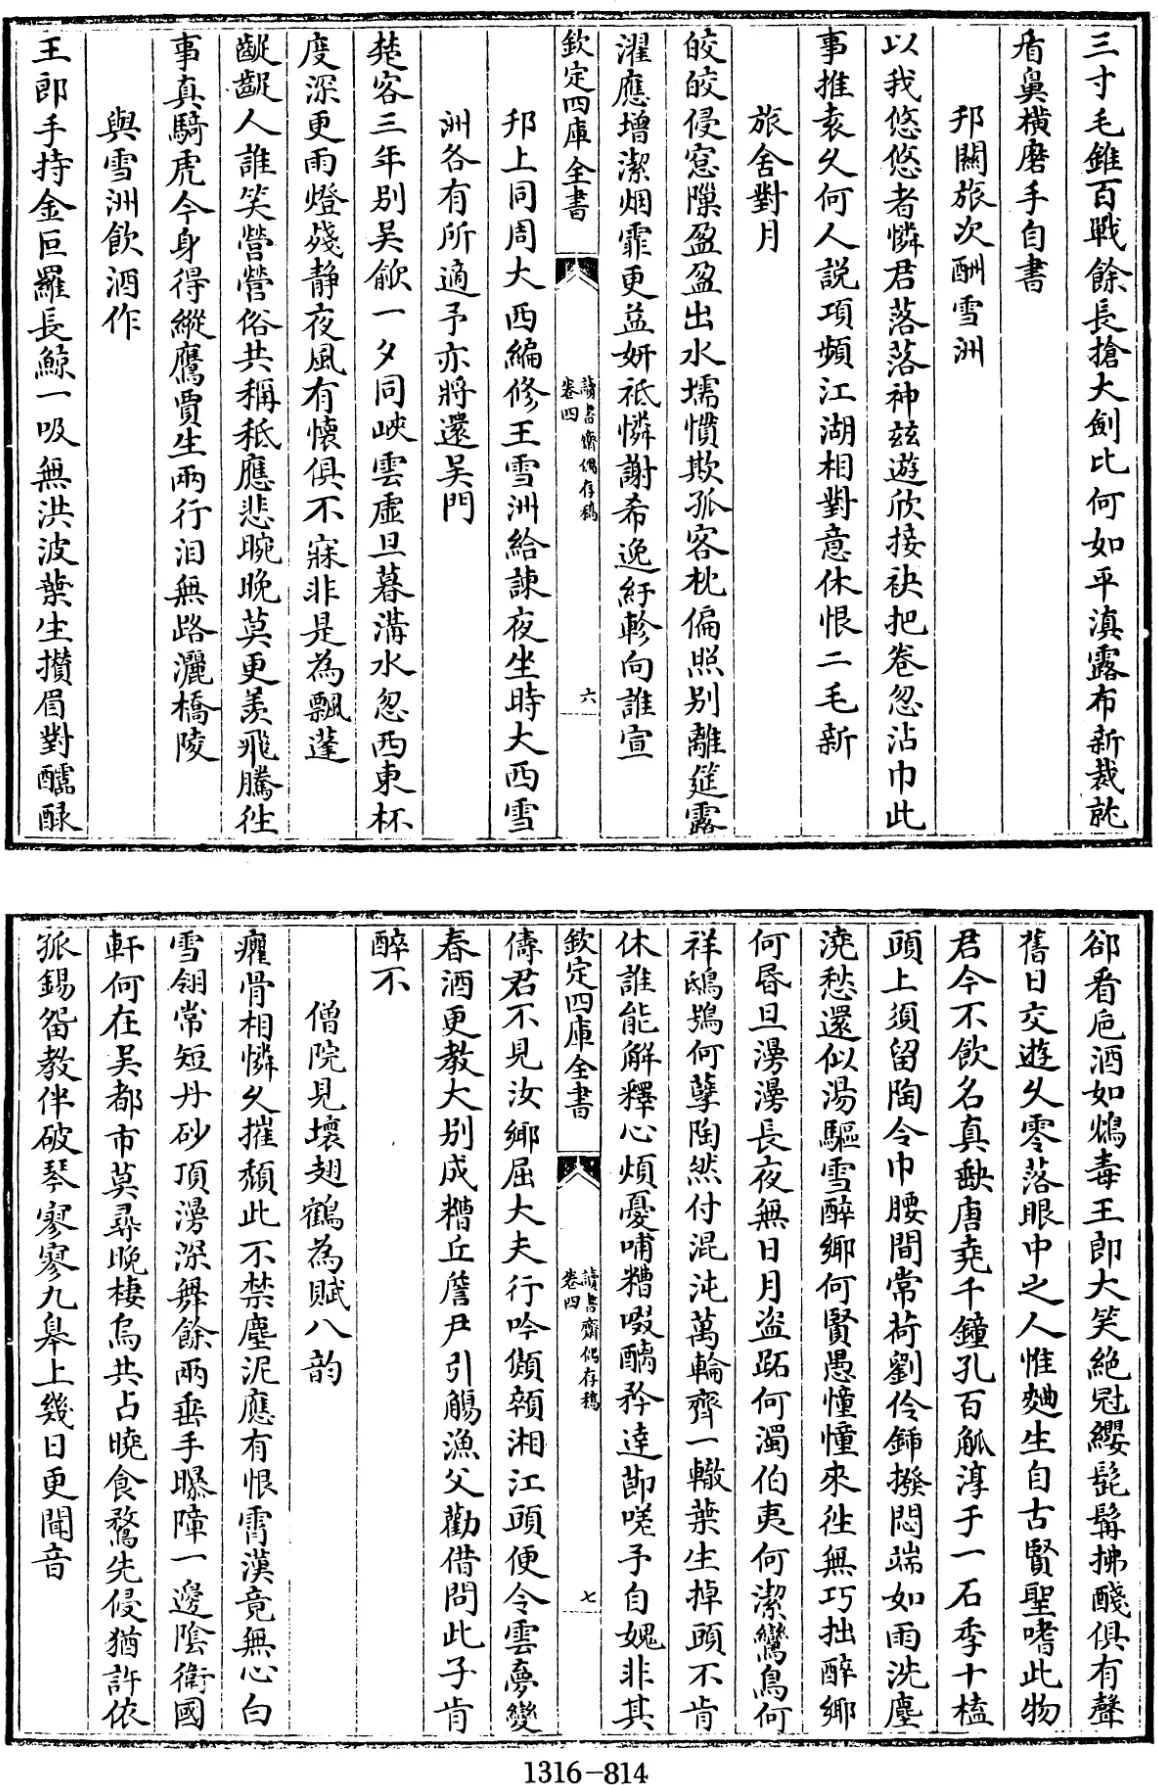 三寸毛錐百戰餘長搶大劍比何如平滇露布新裁就
盾鼻橫磨手自書
邗關旅次酬雪洲
以我悠悠者憐君落落神兹遊欣接袂把卷忽沾巾此
事推袁久何人説項頻江湖相對意休恨二毛新
旅舍對月
皎皎侵窓隟盈盈出水壖慣欺孤客枕偏照别離筵露
濯應增潔烟霏更益妍祗憐謝希逸紆軫向誰宣
欽定四庫全書
讀書齋偶存稿
卷四
六
邗上同周大西編修王雪洲給諫夜坐時大西雪
洲各有所適予亦將還吴門
楚客三年别吴歈一夕同峽雲虛旦暮溝水忽西東杯
度深更雨燈殘静夜風有懷俱不寐非是為飄蓬
齷齪人誰笑營營俗共稱秪應悲晼晚莫更羨飛騰徃
事真騎虎今身得縱鷹賈生兩行泪無路灑橋陵
與雪洲飲酒作
王郎手持金叵羅長鯨一吸無洪波葉生攢眉對醽醁
郤看巵酒如鴆毒王郎大笑絶冠纓髭髯拂醆俱有聲
舊日交遊久零落眼中之人惟麯生自古賢聖嗜此物
君今不飲名真缺唐堯千鐘孔百觚淳于一石季十榼
頭上須留陶令巾腰間常荷劉伶鍤撥悶端如雨洗塵
澆愁還似湯驅雪醉鄉何賢愚憧憧來徃無巧拙醉鄉
何昏旦漫漫長夜無日月盗跖何濁伯夷何潔鸞鳥何
祥鴟鴞何孽陶然付混沌萬輪齊一轍葉生掉頭不肯
休誰能解釋心煩憂哺糟啜醨矜達節嗟予自媿非其
欽定四庫全書
讀書齋偶存稿
卷四
七
儔君不見汝鄉屈大夫行吟顦顇湘江頭便令雲夢變
春酒更教大别成糟丘詹尹引觴漁父勸借問此子肯
醉不
僧院見壞翅鶴為賦八韵
癯骨相憐久摧頽此不禁塵泥應有恨霄漢竟無心白
雪翎常短丹砂頂漫深舞餘兩垂手曝障一邊陰衛國
軒何在吴都市莫尋晚棲烏共占曉食鶩先侵猶許依
孤錫畱教伴破琴寥寥九臯上幾日更聞音
1316-814